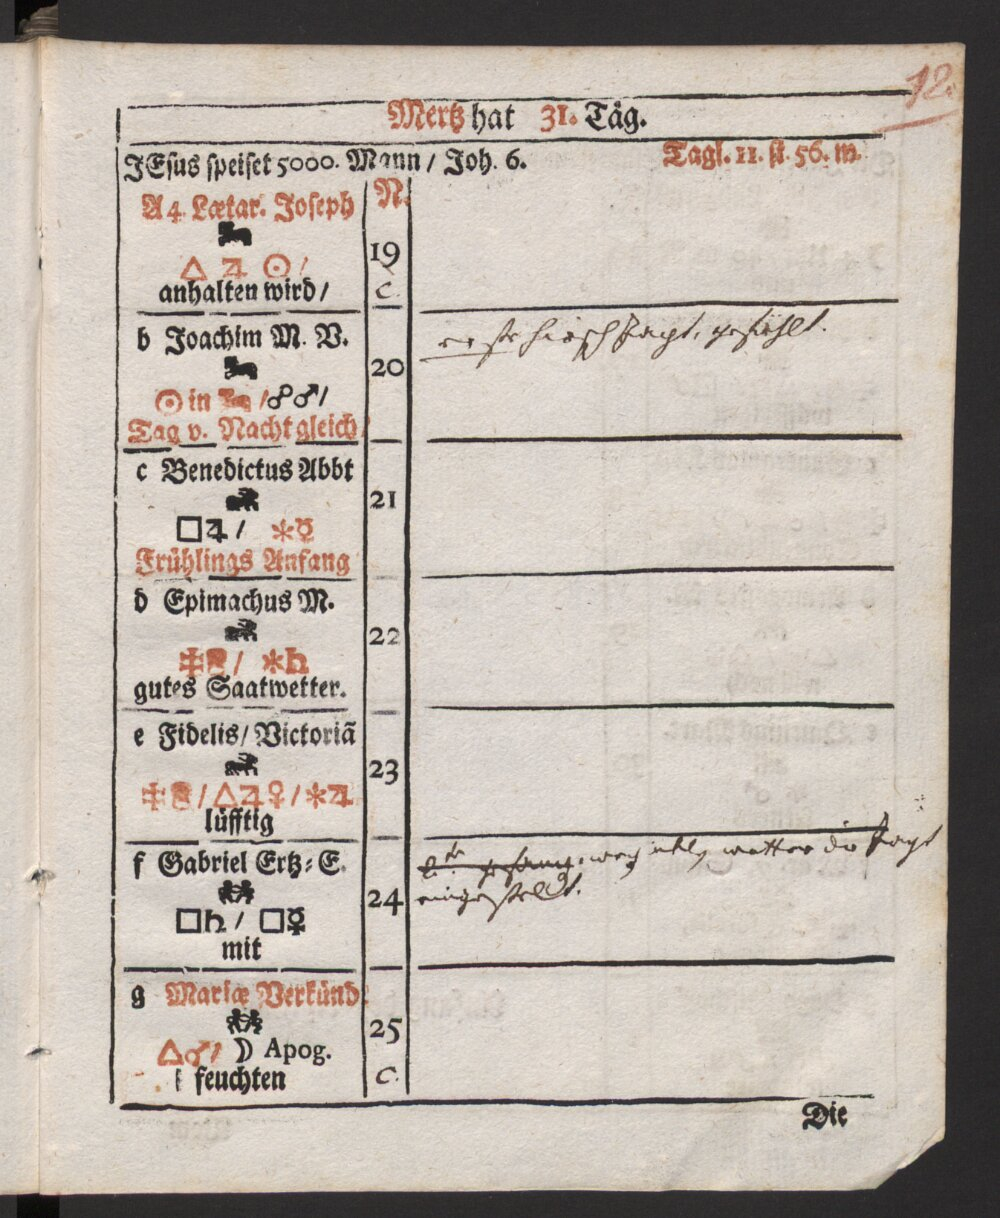 12.
Mertz hat 31. Täg.
JEsus speiset 5000. Mann / Joh. 6.
Tagl. 11. st. 56. m.
A 4 Lætar. Joseph
N.
19
△ ♃ ☉ /
anhalten wird /
C.
b Joachim M. V.
20
☉ in / ☍ ♂ /
Tag v. Nacht gleich /
c Benedictus Abbt
21
□ ♃ / ⚹ ☿
Frühlings Anfang
d Epimachus M.
22
/ ⚹ ♄
gutes Saatwetter.
e Fidelis / Victoriã
23
/ △ ♃ ♀ / ⚹ ♃
lüfftig
f Gabriel Ertz⸗E.
24
□ ♄ / □ ☿
mit
wetter die
g Mariæ Verkünd.
25
△ ♂ / ☽ Apog.
feuchten
C.
Die